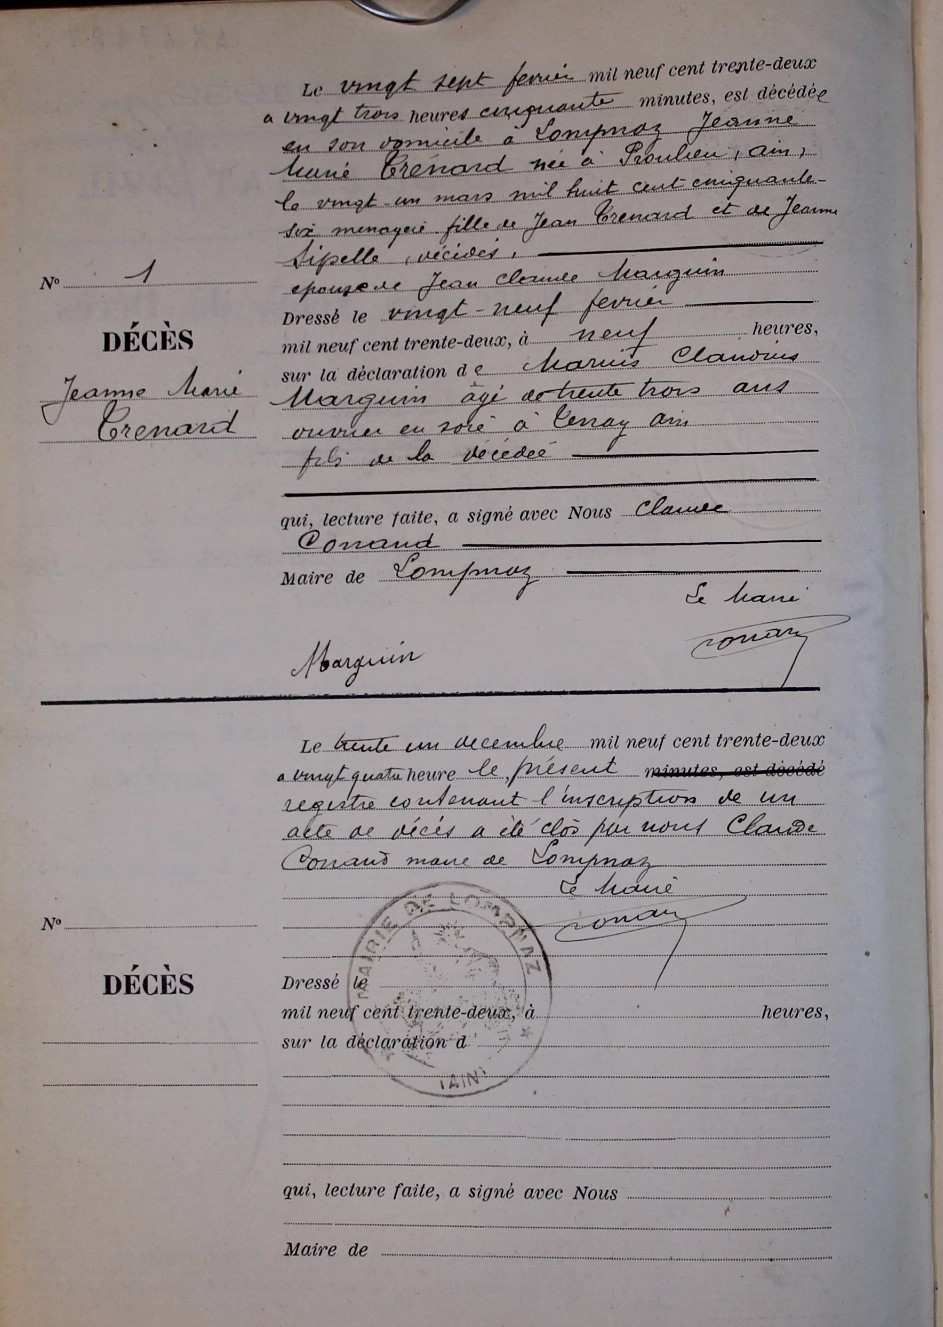 Le vingt sept fevrier mil neuf cent trente-deux
a vingt trois heures cinquante minutes, est décédée
en son domicile à Lompnaz Jeanne
Marie Trénard née à Proulieu, ain,
le vingt-un mars mil huit cent cinquante-
six ménagère fille de Jean Trenard et de Jeanne
Sipelle, décédés,
epouse de Jean Claude Marguin
Nº 1
DÉCÈS
Jeanne Marie
Trenard
Dressé le vingt-neuf février
mil neuf cent trente-deux, à neuf heures,
sur la déclaration de Marius Claudius
Marguin âgé de trente trois ans
ouvrier en soie à Tenay ain
fils de la décédée
qui, lecture faite, a signé avec Nous Claude
Conand
Maire de Lompnaz
Le Maire
Marguin
Conand
Le trente un decembre mil neuf cent trente-deux
a vingt quatre heure le présent minutes, est décédé
registre contenant l'inscription de un
acte de décès a été clos par nous Claude
Conand maire de Lompnaz
Le Maire
Conand
MAIRIE DE LOMPNAZ
(AIN)
Nº
DÉCÈS
Dressé le
mil neuf cent trente-deux, à heures,
sur la déclaration d
qui, lecture faite, a signé avec Nous
Maire de